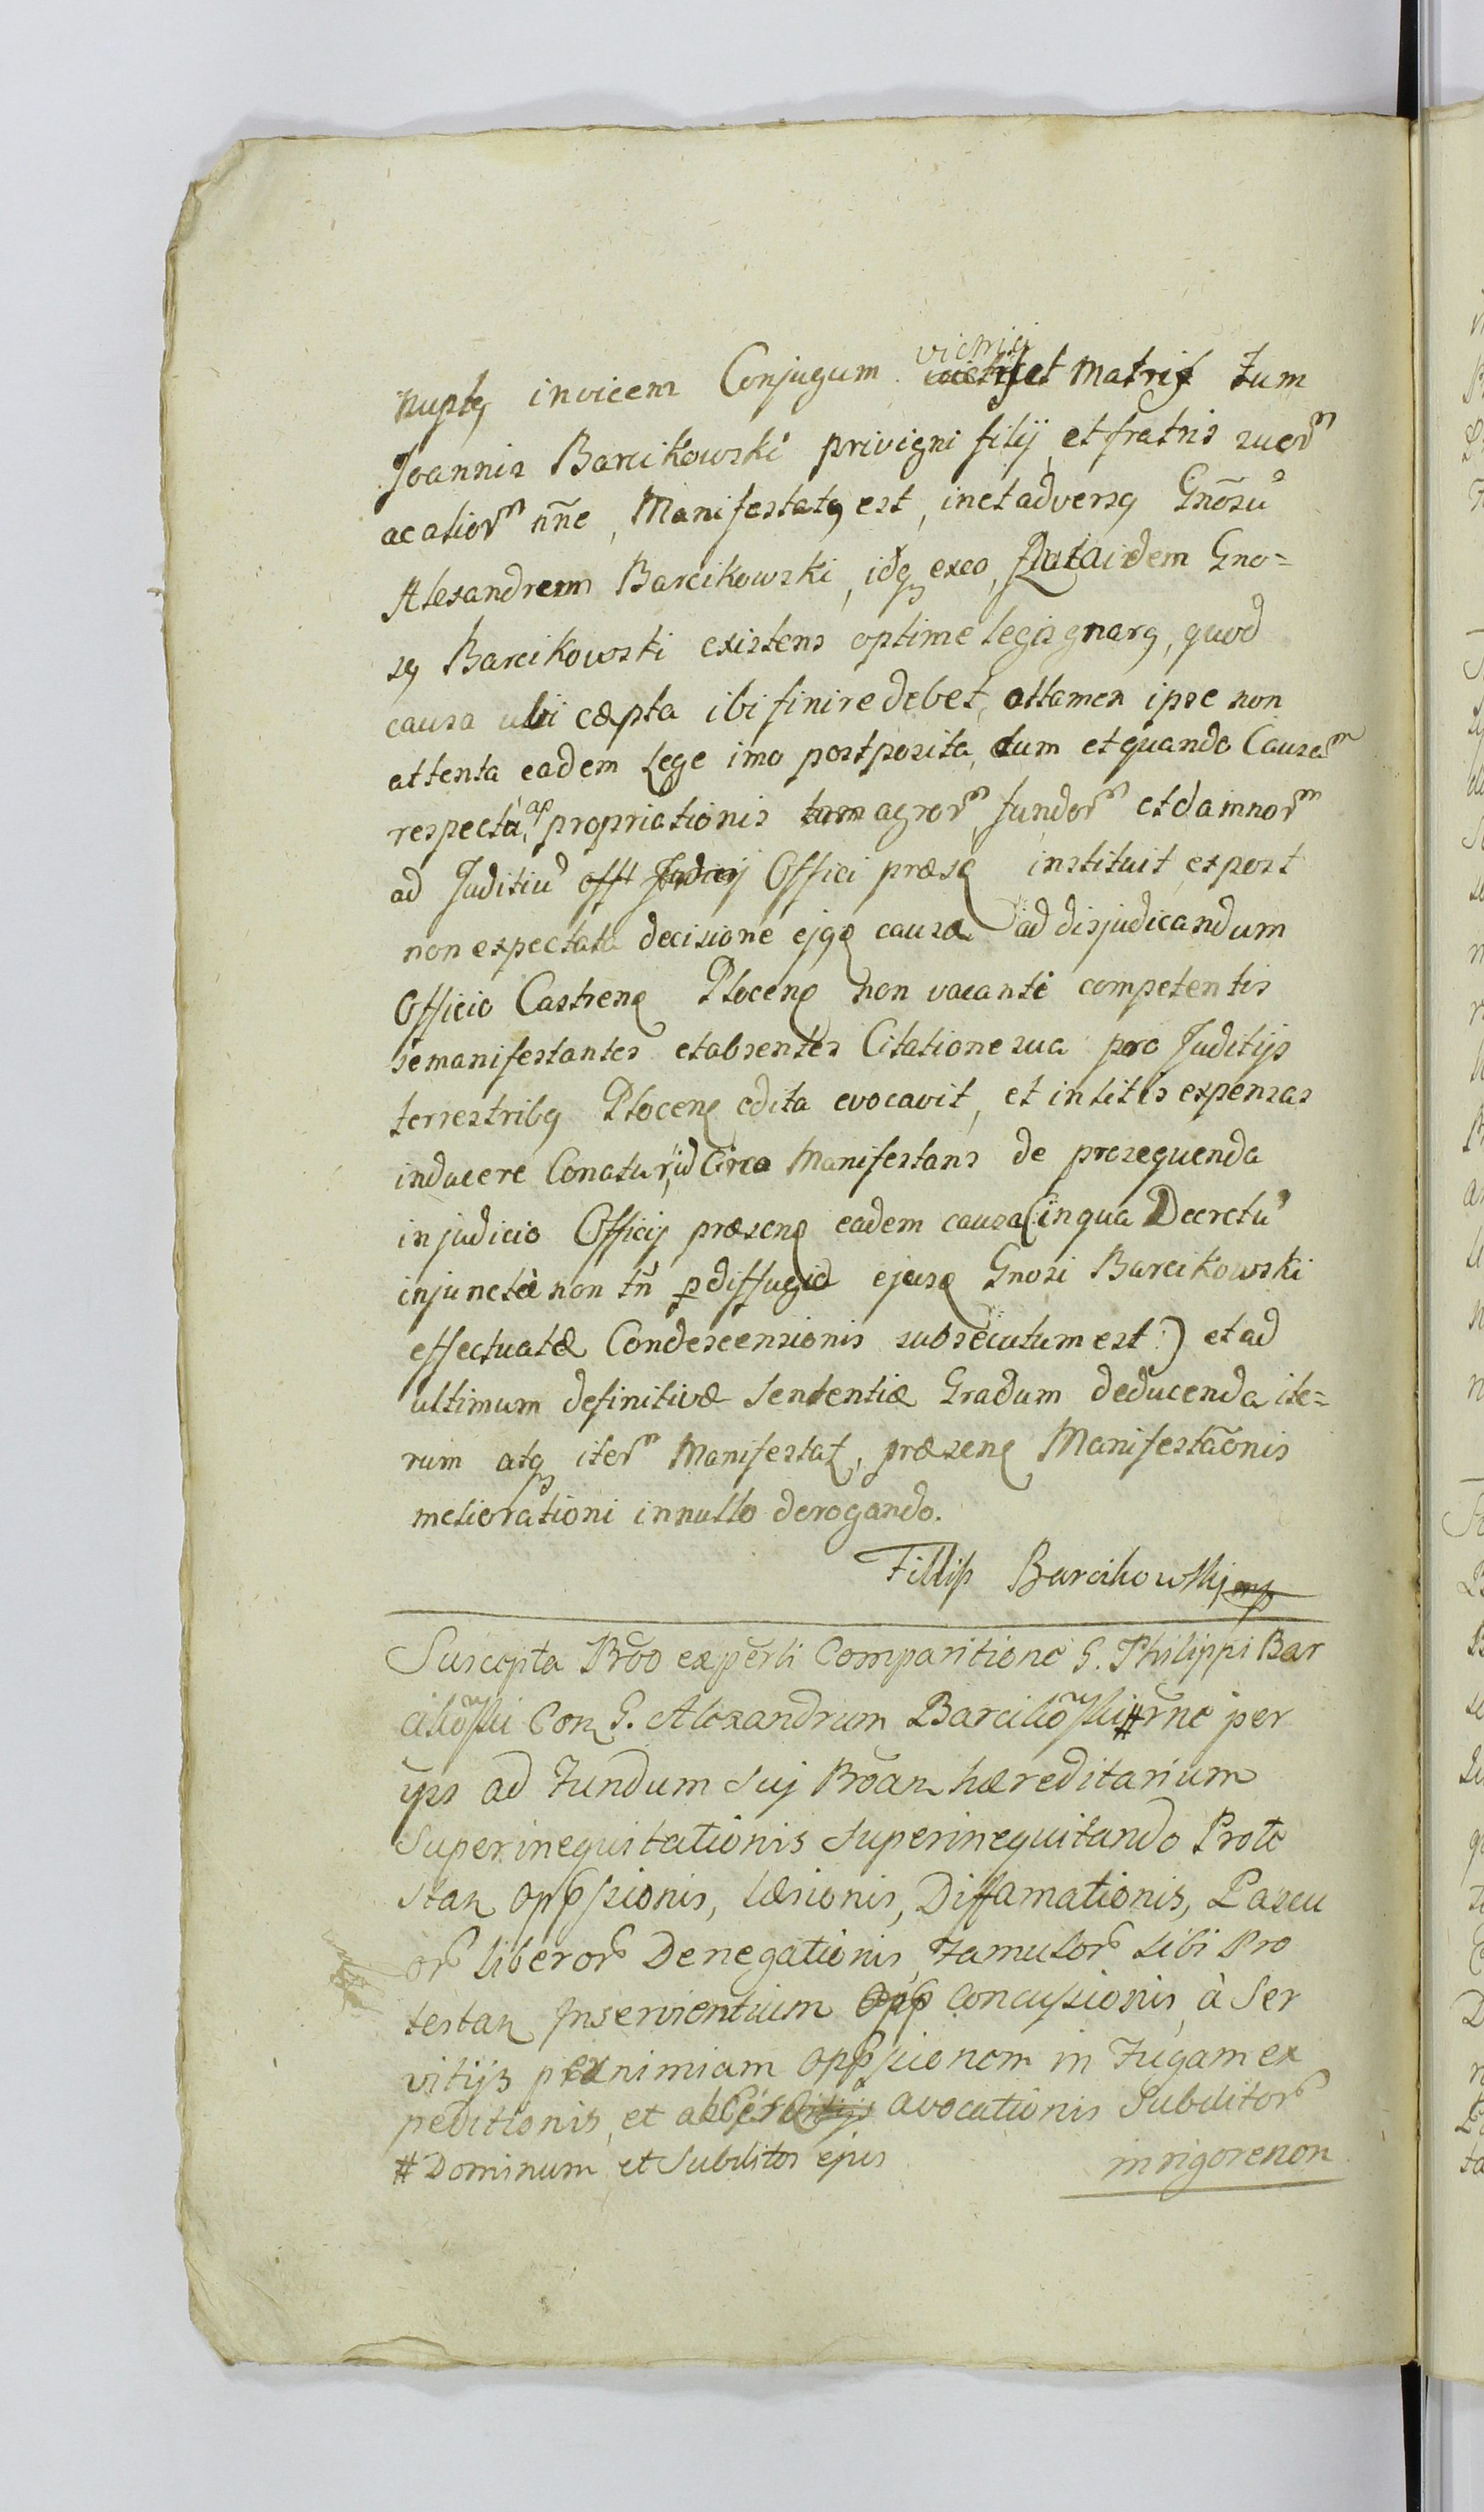 nuptę invicem Conjugum vitrici et Matris tum
Joannis Barcikowski privigni filij et fratris suorm
ac aliorm nn̄e, Manifestatq est, in et adversq Gnōsu
Alexandrem Barcikowski, idq exeo, quia idem Gno=
sq Barcikowski existens optime legis gnarq, quod
causa ubi cæpta ibi finire debet, attamen ipse non
attenta eadem Lege imo postposita, dum et quando Causam
respectu appropriationis agrorm, fundorm et damnorm
ad Juditiu Offici præsę instituit, expost
non expectata decisione ejqę causæ ad disjudicandum
Officio Castrenę Plocenę non vacanti competentis
se manifestantes et absentes Citatione sua pro Juditijs
terrestribq Plocenę edita evocavit, et in litis expensas
inducere Conatur, id Circa Manifestans de prosequenda
in judicio Officij præsenę eadem causa (: in qua Decretu
injunctæ non tn̄ p diffugia ejusę Gnosi Barcikowski
effectuatæ Condescensionis subsecutum est :) et ad
ultimum definitivæ Sententiæ Gradum deducenda ite=
rum atq iterm Manifestat, præsenę Manifestāonis
meliorationi in nullo derogando.
Fillip Barcikowski mp
Suscepta Prōo experti Comparitione G. Philippi Bar
cikōski Con G. Alexandrum Barcikōski # rñe per
ips ad Fundum Suj Prōan hæreditarium
Superinequitationis Superinequitando Prote
stan Oppssionis, læsionis, Diffamationis, Pascu
or liberor Denegationis, Famulor sibi Pro
testan Inservientium Opp Concussionis, à Ser
vitijs p nimiam Oppssionem in Fugam ex
peditionis, et ab Servitijs avocationis Subditor
# Dominum et Subditos ejus
in rigore non